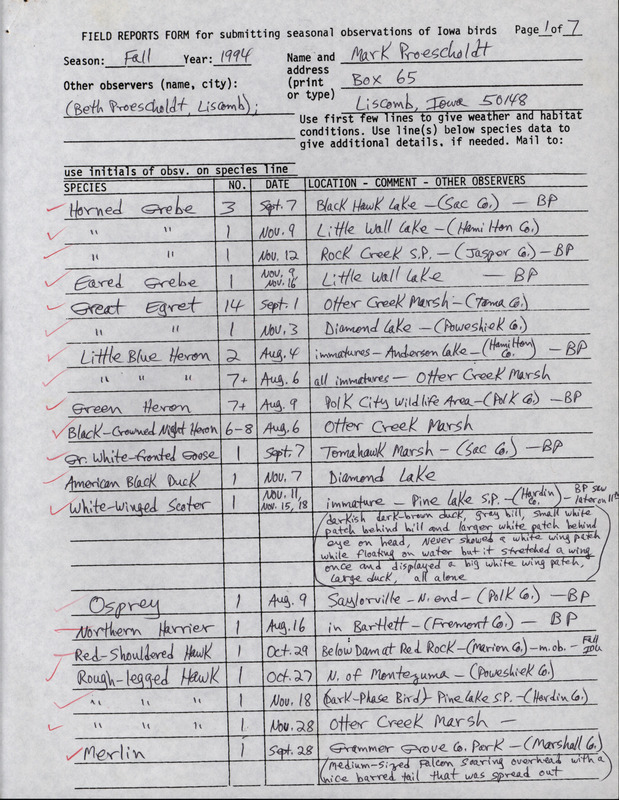 FIELD REPORTS FORM for submitting seasonal observations of Iowa birds Page 1 of 7
Season: Fall Year: 1994 Name and address (print or type) Mark Proescholdt
Box 65
Liscomb, Iowa 50148
Other observers (name, city):
(Beth Proescholdt, Liscomb);
Use first few lines to give weather and habitat
conditions. Use line(s) below species data to
give additional details, if needed. Mail to:
use initials of obsv. on species line
SPECIES NO. DATE LOCATION - COMMENT - OTHER OBSERVERS
Horned Grebe 3 Sept. 7 Black Hawk Lake - (Sac Co.) - BP
" " 1 Nov. 9 Little Wall Lake - (Hamilton Co.)
" " 1 Nov. 12 Rock Creek S.P. - (Jasper Co.) - BP
Eared Grebe 1 Nov. 9 Nov. 16 Little Wall Lake - BP
Great Egret 14 Sept. 1 Otter Creek Marsh - (Tama Co.)
" " 1 Nov. 3 Diamond Lake - (Poweshiek Co.)
Little Blue Heron 2 Aug. 4 immatures - Anderson Lake - (Hamilton Co.) - BP
" " " 7+ Aug. 6 all immatures - Otter Creek Marsh
Green Heron 7+ Aug. 9 Polk City Wildlife Area - (Polk Co.) - BP
Black-Crowned Night Heron 6-8 Aug. 6 Otter Creek Marsh
Gr. White-fronted Goose 1 Sept. 7 Tomahawk Marsh - (Sac Co.) - BP
American Black Duck 1 Nov. 7 Diamond Lake
White-winged Scoter 1 Nov. 11, Nov. 15, 18 immature - Pine Lake S.P. - (Hardin Co.) - BP saw later on 11th
(darkish dark-brown duck, gray bill, small white
patch behind bill and larger white patch behind
eye on head, never showed a white wing patch
while floating on water but it stretched a wing
once and displayed a big white wing patch,
large duck, all alone)
Osprey 1 Aug. 9 Saylorville - N. end - (Polk Co.) - BP
Northern Harrier 1 Aug. 16 in Bartlett - (Fremont Co.) - BP
Red-Shouldered Hawk 1 Oct. 29 Below Dam at Red Rock - (Marion Co.) - m.ob. - Fall IOU
Rough-legged Hawk 1 Oct. 27 N. of Montezuma - (Poweshiek Co.)
" " " 1 Nov. 18 (Dark-Phase Bird) - Pine Lake S.P. - (Hardin Co.)
" " " 1 Nov. 28 Otter Creek Marsh -
Merlin 1 Sept. 28 Grammer Grove Co. Park - (Marshall Co.)
(medium-sized Falcon soaring overhead with a
nice barred tail that was spread out)